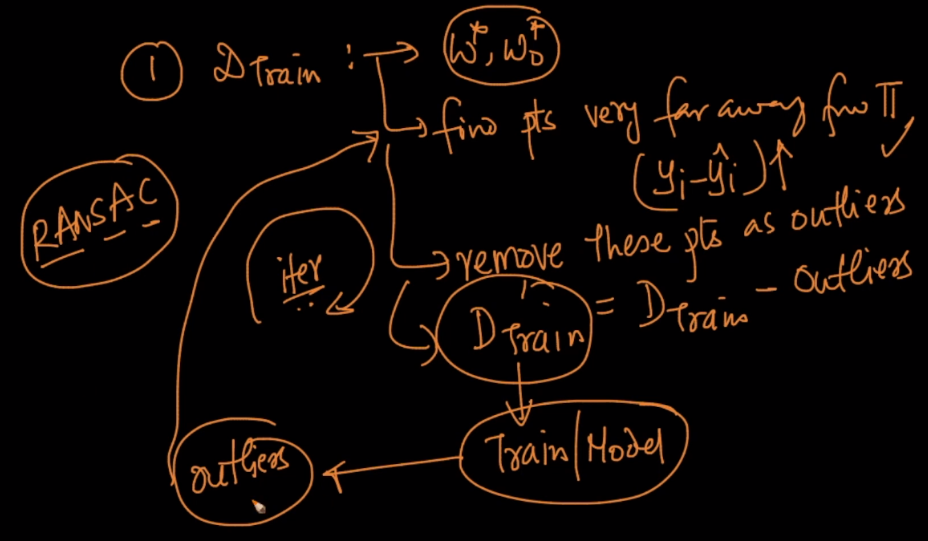 ① D Train : → w*, w₀*
→ find pts very far away fro π
(yᵢ - ŷᵢ)↑ ✓
RANSAC
→ remove these pts as outliers
iter
D'Train = DTrain - outliers
Train/Model
outliers